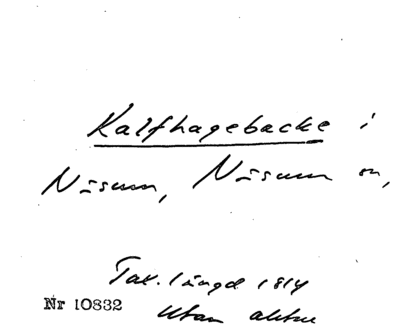 Kalfhagebacke i
Näsum, Näsum sn,
Tax. längd 1814
Nr 10832
utan aktnr